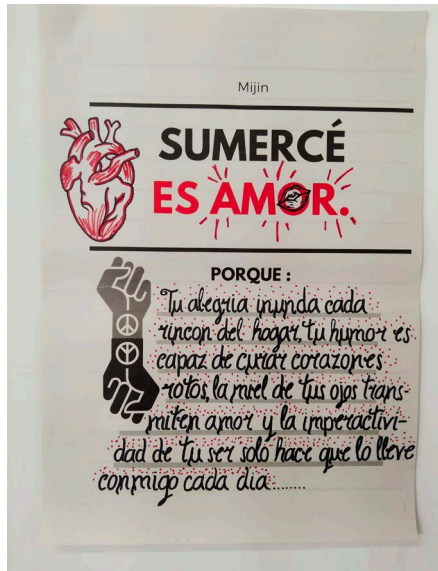 Mijin
SUMERCÉ
ES AMOR.
PORQUE :
Tu alegria inunda cada
rincon del hogar, tu humor es
capaz de curar corazones
rotos, la miel de tus ojos trans-
miten amor y la imperactivi-
dad de tu ser solo hace que lo lleve
conmigo cada dia........